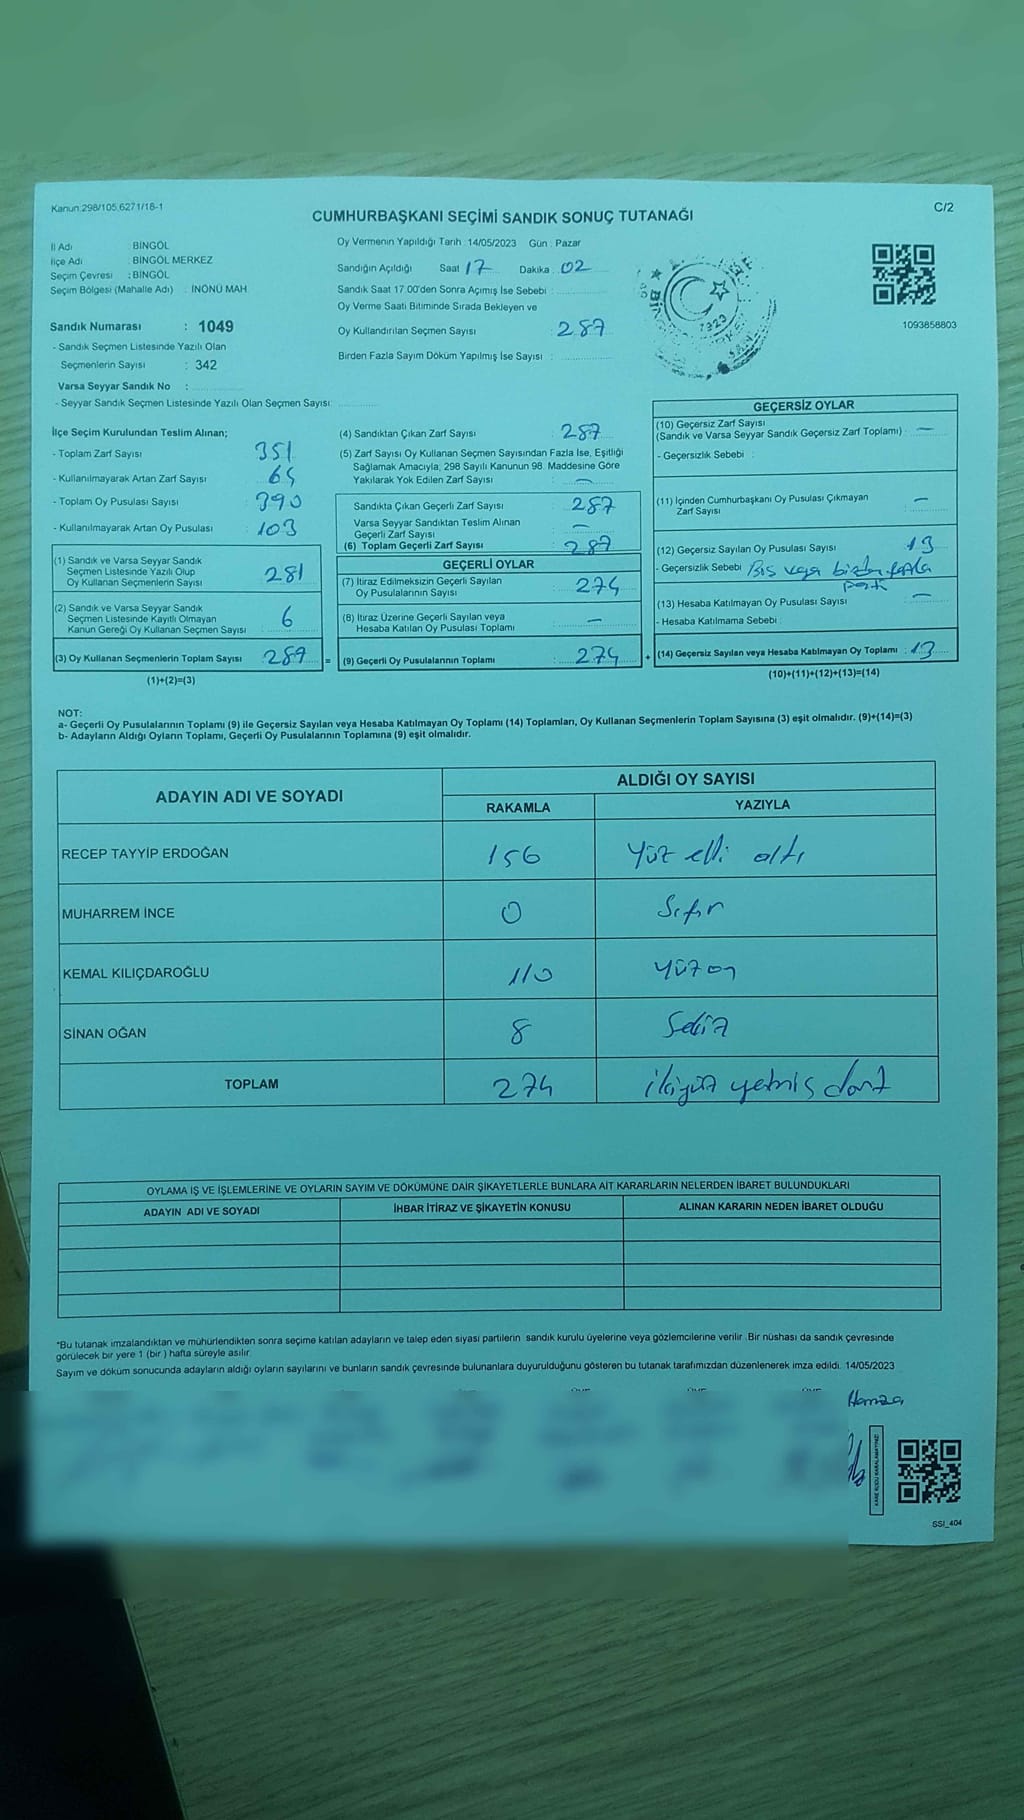 Kanun:298/105,6271/18-1
C/2
CUMHURBAŞKANI SEÇİMİ SANDIK SONUÇ TUTANAĞI
İl Adı : BİNGÖL
İlçe Adı : BİNGÖL MERKEZ
Seçim Çevresi : BİNGÖL
Seçim Bölgesi (Mahalle Adı) : İNÖNÜ MAH.
Sandık Numarası : 1049
- Sandık Seçmen Listesinde Yazılı Olan
Seçmenlerin Sayısı : 342
Varsa Seyyar Sandık No :
- Seyyar Sandık Seçmen Listesinde Yazılı Olan Seçmen Sayısı:
Oy Vermenin Yapıldığı Tarih : 14/05/2023 Gün : Pazar
Sandığın Açıldığı Saat 17 Dakika : 02
Sandık Saat 17.00'den Sonra Açımış İse Sebebi :
Oy Verme Saati Bitiminde Sırada Bekleyen ve
Oy Kullandırılan Seçmen Sayısı : 287
Birden Fazla Sayım Döküm Yapılmış İse Sayısı :
1923
1093858803
İlçe Seçim Kurulundan Teslim Alınan;
- Toplam Zarf Sayısı : 351
- Kullanılmayarak Artan Zarf Sayısı : 65
- Toplam Oy Pusulası Sayısı : 390
- Kullanılmayarak Artan Oy Pusulası : 103
(1) Sandık ve Varsa Seyyar Sandık
Seçmen Listesinde Yazılı Olup
Oy Kullanan Seçmenlerin Sayısı : 281
(2) Sandık ve Varsa Seyyar Sandık
Seçmen Listesinde Kayıtlı Olmayan
Kanun Gereği Oy Kullanan Seçmen Sayısı : 6
(3) Oy Kullanan Seçmenlerin Toplam Sayısı : 287 =
(1)+(2)=(3)
(4) Sandıktan Çıkan Zarf Sayısı : 287
(5) Zarf Sayısı Oy Kullanan Seçmen Sayısından Fazla İse, Eşitliği
Sağlamak Amacıyla, 298 Sayılı Kanunun 98. Maddesine Göre
Yakılarak Yok Edilen Zarf Sayısı : —
Sandıkta Çıkan Geçerli Zarf Sayısı : 287
Varsa Seyyar Sandıktan Teslim Alınan
Geçerli Zarf Sayısı : —
(6) Toplam Geçerli Zarf Sayısı : 287
GEÇERLİ OYLAR
(7) İtiraz Edilmeksizin Geçerli Sayılan
Oy Pusulalarının Sayısı : 274
(8) İtiraz Üzerine Geçerli Sayılan veya
Hesaba Katılan Oy Pusulası Toplamı : —
(9) Geçerli Oy Pusulalarının Toplamı : 274 +
GEÇERSİZ OYLAR
(10) Geçersiz Zarf Sayısı
(Sandık ve Varsa Seyyar Sandık Geçersiz Zarf Toplamı) : —
- Geçersizlik Sebebi :
(11) İçinden Cumhurbaşkanı Oy Pusulası Çıkmayan
Zarf Sayısı : —
(12) Geçersiz Sayılan Oy Pusulası Sayısı : 13
- Geçersizlik Sebebi : Boş veya birden fazla
parti
(13) Hesaba Katılmayan Oy Pusulası Sayısı : —
- Hesaba Katılmama Sebebi :
(14) Geçersiz Sayılan veya Hesaba Katılmayan Oy Toplamı : 13
(10)+(11)+(12)+(13)=(14)
NOT:
a- Geçerli Oy Pusulalarının Toplamı (9) ile Geçersiz Sayılan veya Hesaba Katılmayan Oy Toplamı (14) Toplamları, Oy Kullanan Seçmenlerin Toplam Sayısına (3) eşit olmalıdır. (9)+(14)=(3)
b- Adayların Aldığı Oyların Toplamı, Geçerli Oy Pusulalarının Toplamına (9) eşit olmalıdır.
ADAYIN ADI VE SOYADI
ALDIĞI OY SAYISI
RAKAMLA YAZIYLA
RECEP TAYYİP ERDOĞAN 156 Yüz elli altı
MUHARREM İNCE 0 Sıfır
KEMAL KILIÇDAROĞLU 110 Yüz on
SİNAN OĞAN 8 Sekiz
TOPLAM 274 ikiyüz yetmiş dört
OYLAMA İŞ VE İŞLEMLERİNE VE OYLARIN SAYIM VE DÖKÜMÜNE DAİR ŞİKAYETLERLE BUNLARA AİT KARARLARIN NELERDEN İBARET BULUNDUKLARI
ADAYIN ADI VE SOYADI İHBAR İTİRAZ VE ŞİKAYETİN KONUSU ALINAN KARARIN NEDEN İBARET OLDUĞU
*Bu tutanak imzalandıktan ve mühürlendikten sonra seçime katılan adayların ve talep eden siyasi partilerin sandık kurulu üyelerine veya gözlemcilerine verilir. Bir nüshası da sandık çevresinde
görülecek bir yere 1 (bir ) hafta süreyle asılır.
Sayım ve döküm sonucunda adayların aldığı oyların sayılarını ve bunların sandık çevresinde bulunanlara duyurulduğunu gösteren bu tutanak tarafımızdan düzenlenerek imza edildi. 14/05/2023
Hamza
KARE KODU KARALAMAYINIZ!
SSİ_404